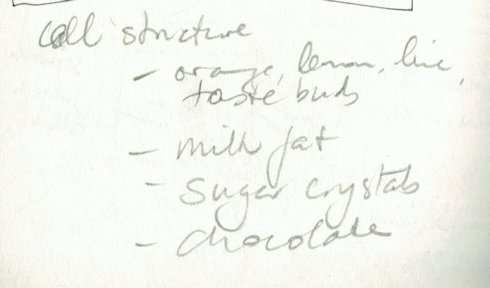 Cell structure
- orange, lemon, lime,
taste buds
- milk fat
- sugar crystals
- chocolate